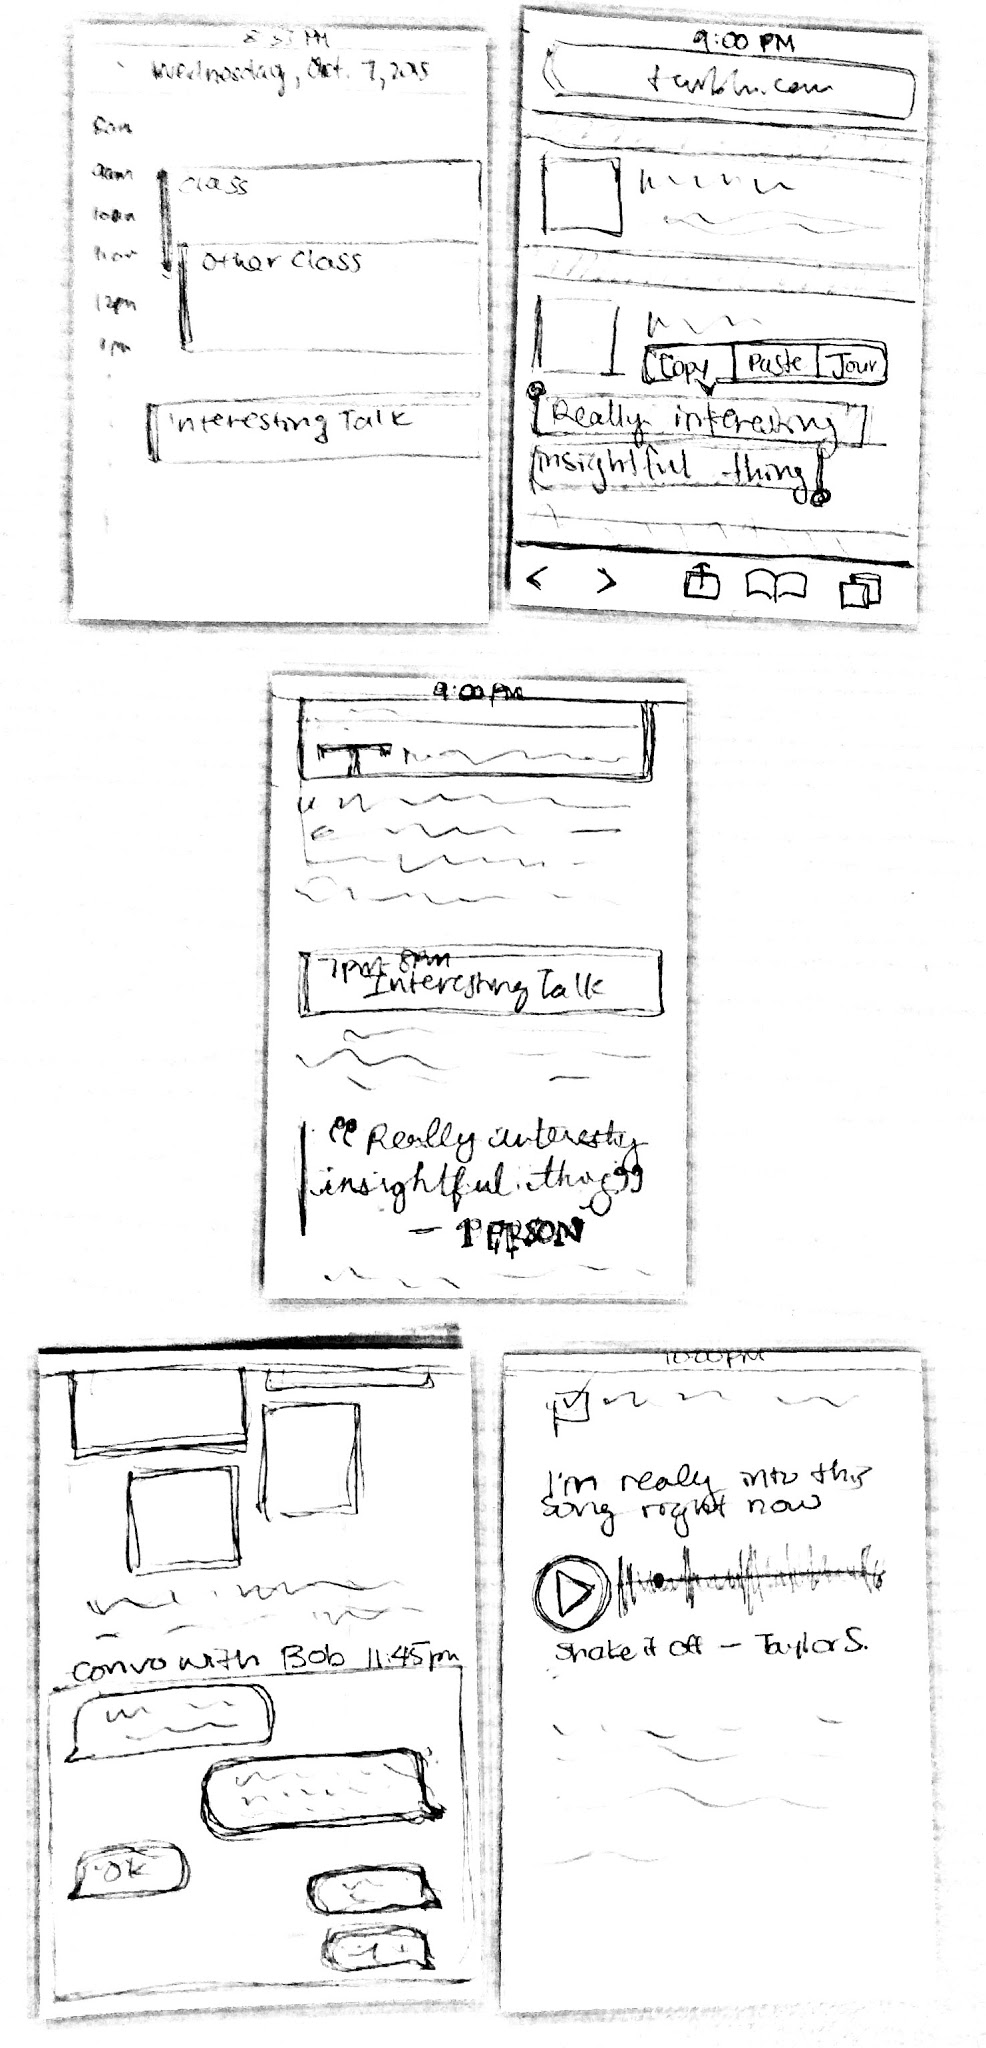 Wednesday, Oct. 7, 2015
8am
9am
class
10am
11am
Other Class
12pm
1pm
Interesting Talk
9:00 PM
Copy Paste Jour
"Really interesting"
insightful thing
9:00 PM
7PM-8PM
Interesting Talk
“Really interesting
insightful thing”
— PERSON
convo with Bob 11:45pm
OK
10:00PM
I'm really into this
song right now
Shake it off – Taylor S.